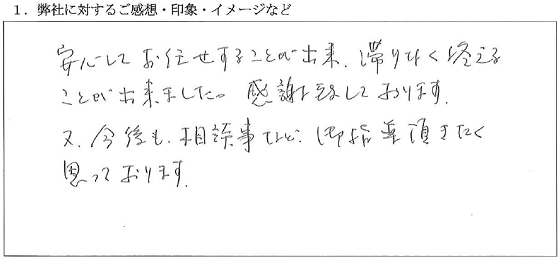 1．弊社に対するご感想・印象・イメージなど
安心してお任せすることが出来、滞りなく終える
ことが出来ました。感謝致しております。
又、今後も、相談事など、御指導頂きたく
思っております。